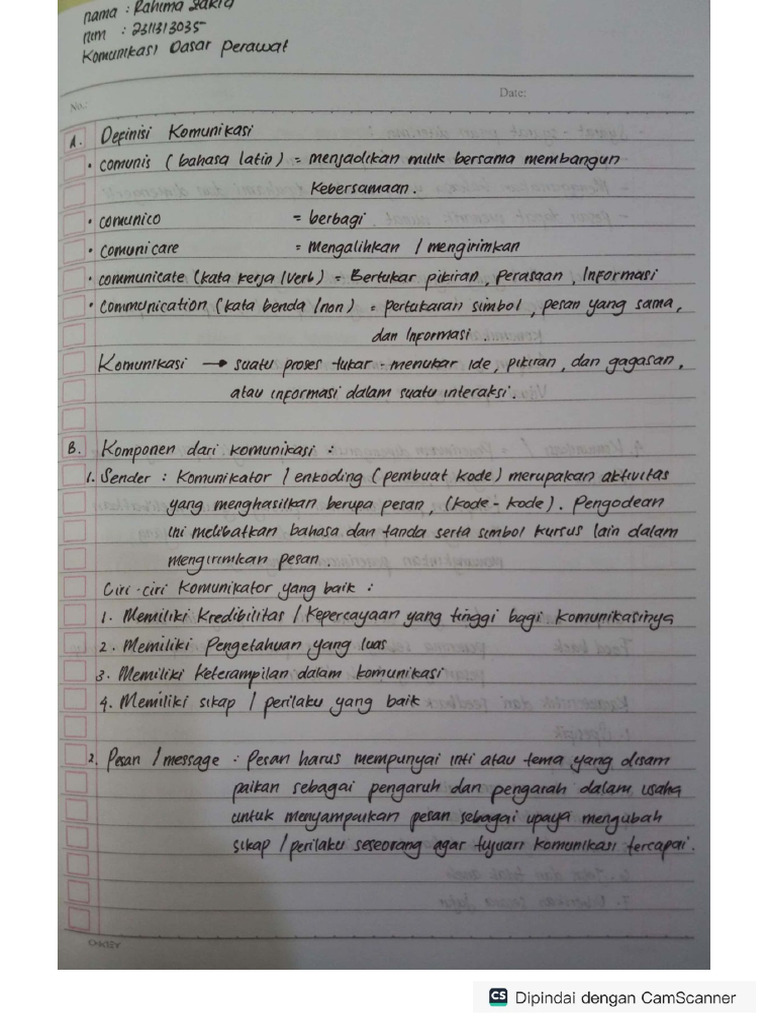 nama : Rahima Zakia
nim : 2311313035
Komunikasi Dasar Perawat
No.: Date:
A. Definisi Komunikasi
• comunis ( bahasa latin ) = menjadikan milik bersama membangun
Kebersamaan .
• comunico = berbagi .
• comunicare = mengalihkan / mengirimkan
• communicate (kata kerja / verb) = Bertukar pikiran , Perasaan , Informasi
• communication (kata benda / non) = pertukaran simbol , pesan yang sama ,
dan Informasi .
Komunikasi → suatu proses tukar - menukar ide, pikiran , dan gagasan ,
atau informasi dalam suatu interaksi .
B. Komponen dari komunikasi :
1. Sender : Komunikator / enkoding ( pembuat kode ) merupakan aktivitas
yang menghasilkan berupa pesan , (kode - kode) . Pengodean
ini melibatkan bahasa dan tanda serta simbol kursus lain dalam
mengirimkan pesan .
Ciri - ciri komunikator yang baik :
1. Memiliki kredibilitas / kepercayaan yang tinggi bagi komunikasinya
2. Memiliki Pengetahuan yang luas
3. Memiliki keterampilan dalam komunikasi
4. Memiliki sikap / perilaku yang baik
2. Pesan / message : Pesan harus mempunyai inti atau tema yang disam
paikan sebagai pengaruh dan pengarah dalam usaha
untuk menyampaikan pesan sebagai upaya mengubah
sikap / perilaku seseorang agar tujuan komunikasi tercapai .
CS Dipindai dengan CamScanner